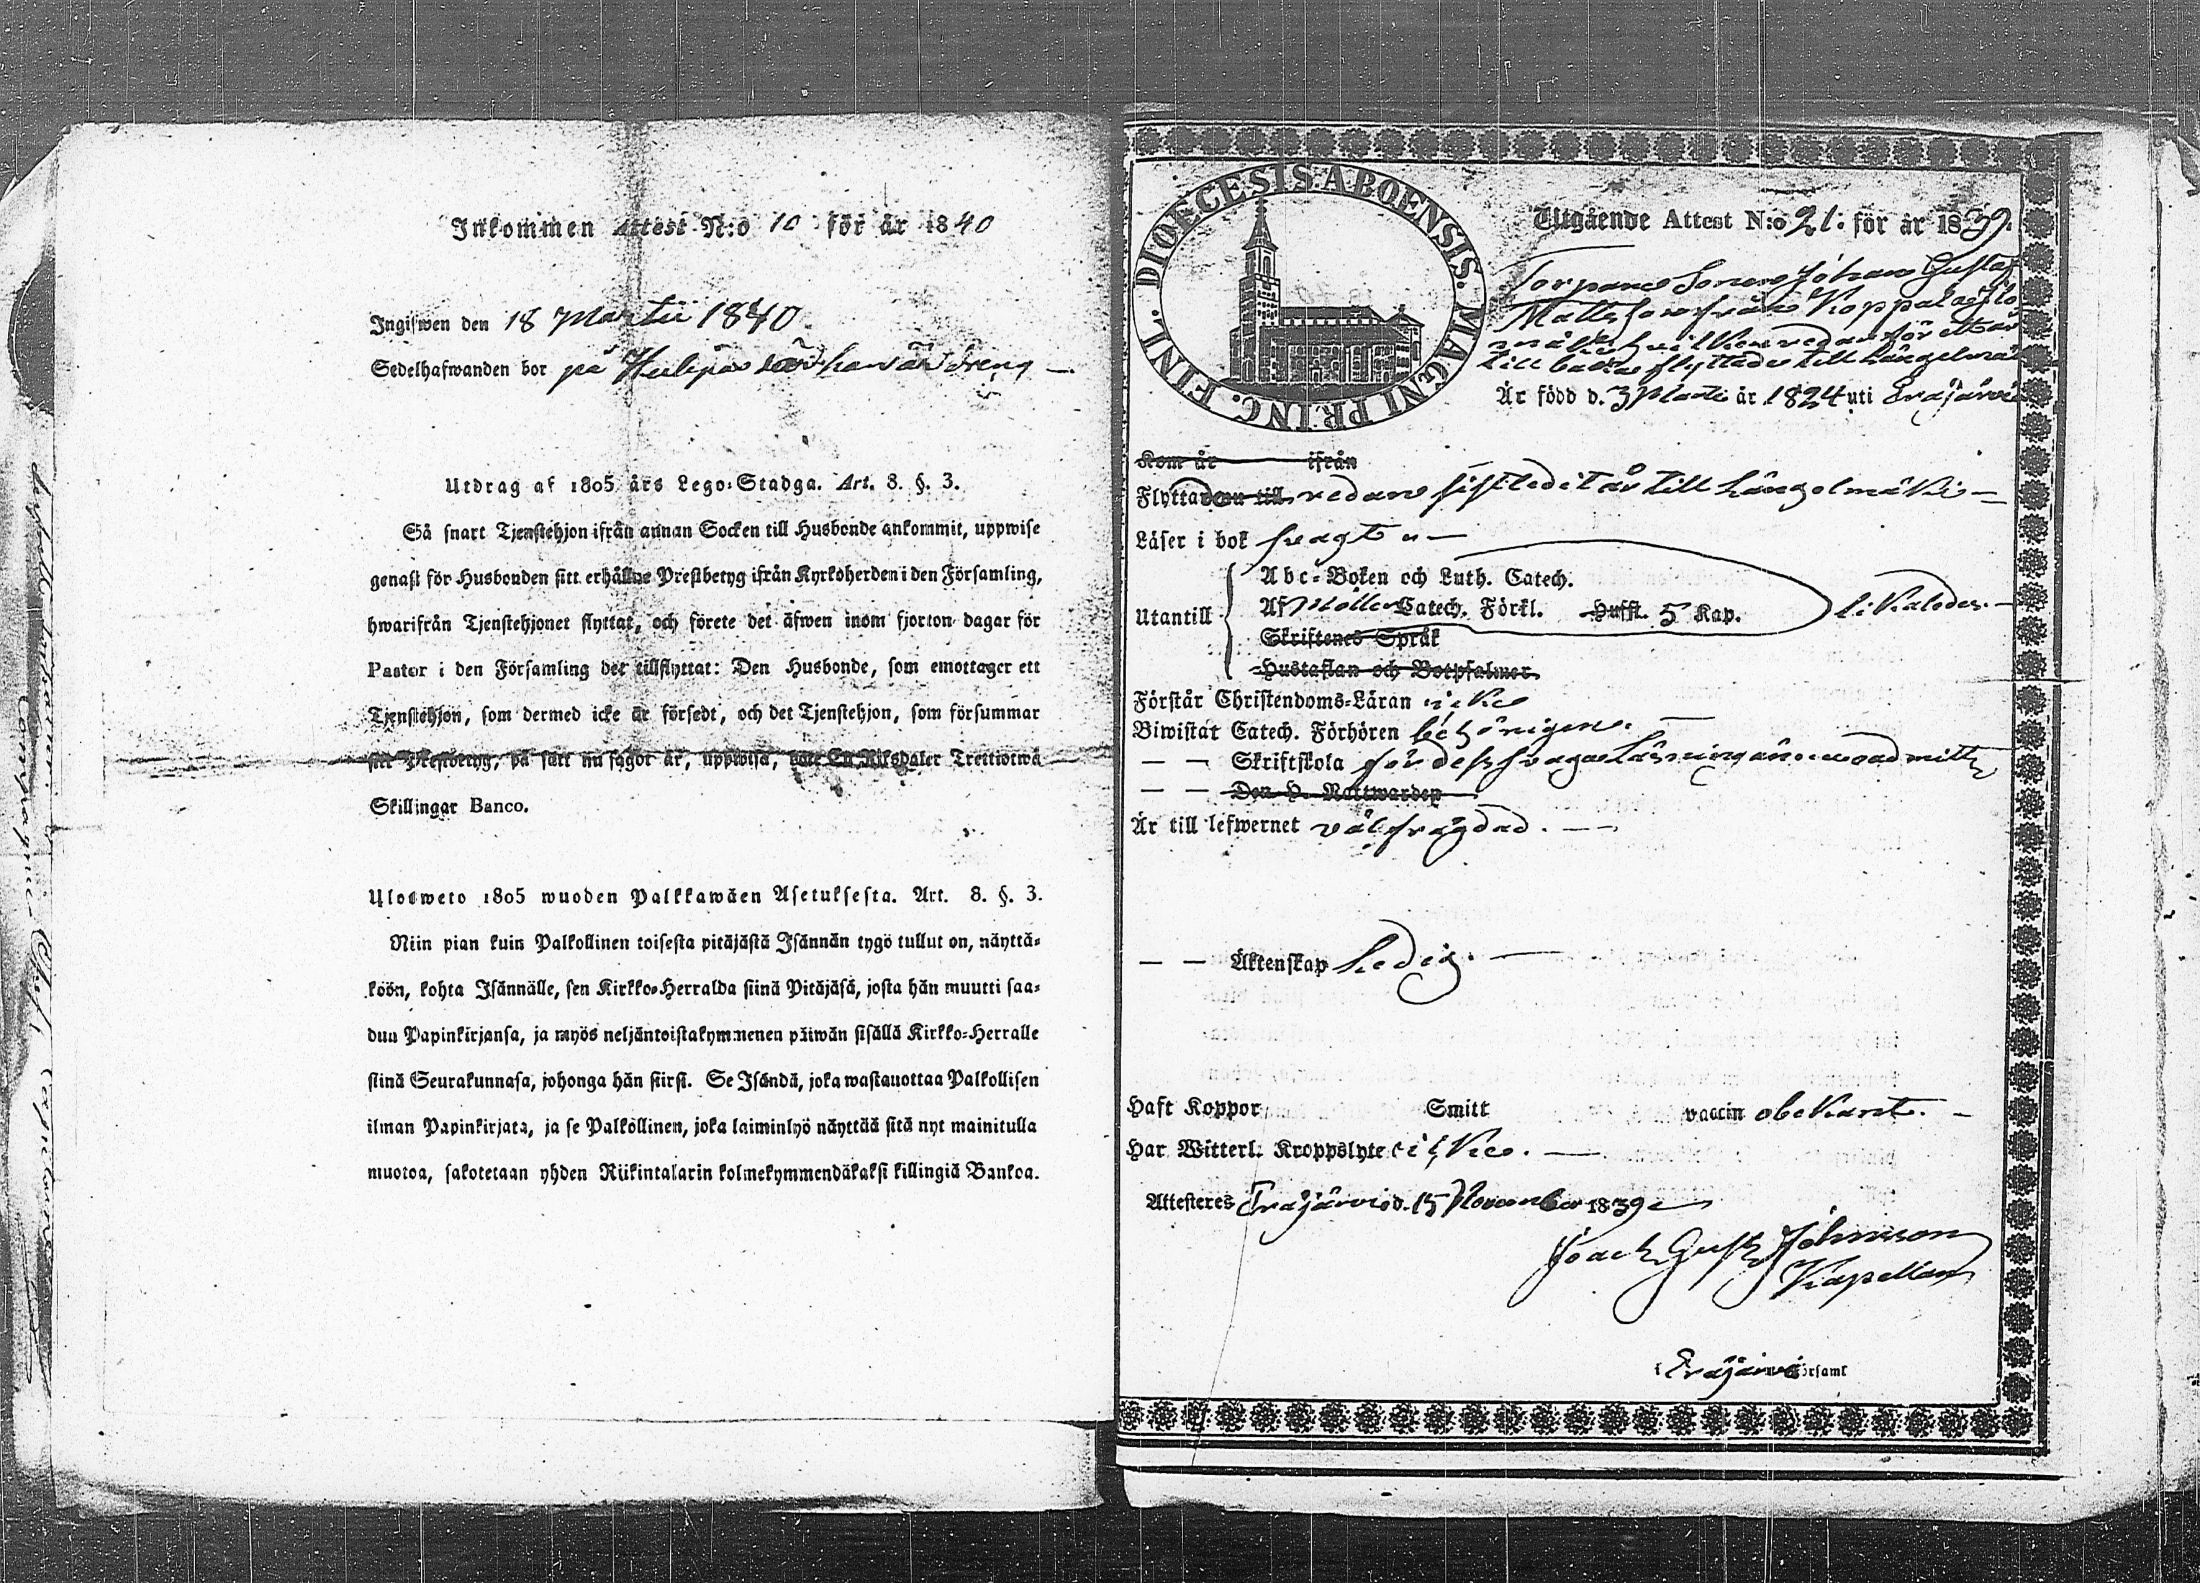 Inkommen Attest N:o 10 för år 1840
Ingifwen den 18 Martii 1840.
Sedelhafwanden bor på dreng
Utdrag af 1805 års Lego-Stadga. Art. 8. §. 3.
Så snart Tjenstehjon ifrån annan Socken till Husbonde ankommit, uppwise
genast för Husbonden sitt erhållne Prestbetyg ifrån Kyrkoherden i den Församling,
hwarifrån Tjenstehjonet flyttat, och förete det äfwen inom fjorton dagar för
Pastor i den Församling det tillflyttat: Den Husbonde, som emottager ett
Tjenstehjon, som dermed icke är försedt, och det Tjenstehjon, som försummar
sitt Prestbetyg, på sätt nu sagdt är, uppwisa, böte En Riksdaler Trettiotwå
Skillingar Banco.
Ulosweto 1805 wuoden Palkkawäen Asetuksesta. Art. 8. §. 3.
Niin pian kuin Palkollinen toisesta pitäjästä Isännän tygö tullut on, näyttä-
köön, kohta Isännälle, sen Kirkko-Herralda siinä Pitäjäsä, josta hän muutti saa-
dun Papinkirjansa, ja myös neljäntoistakymmenen päiwän sisällä Kirkko-Herralle
siinä Seurakunnasa, johonga hän siirsi. Se Isändä, joka wastauottaa Palkollisen
ilman Papinkirjata, ja se Palköllinen, joka laiminlyö näyttää sitä nyt mainitulla
muotoa, sakotetaan yhden Riikintalarin kolmekymmendäkaksi killingiä Bankoa.
DIOECESIS ABOENSIS. MAGNI PRINC. FINL.
Utgående Attest N:o 21. för år 1839.
Torpare Sonen Johan Gustaf
Mattsson från Koppala
hvilken redan för ett år
tillbaka flyttade till Längelmä
Är född d. 3 Marti år 1824 uti Eräjärvi
Kom år ifrån
Flyttade nu till redan sistledit år till Längelmäki
Läser i bok svagt
Utantill
Abc-Boken och Luth. Catech.
Af Möllers Catech. Förkl. Hufst. 5 Kap. likaledes.
Skriftenes Språk
Hustaflan och Botpsalmer
Förstår Christendoms-Läran icke
Biwistat Catech. Förhören behörigen.
— — Skriftskola för dess svaga läsning än oadmitt
— — Den H. Nattwarden
Är till lefwernet välfrägdad.
— — Äktenskap Ledig.
Haft Koppor Smitt vaccin obekant.
Har Witterl. Kroppslyte icke.
Attesteres Eräjärvi d. 15 November 1839
Gust Johnsson
Kapellan
i Eräjärvi Församl